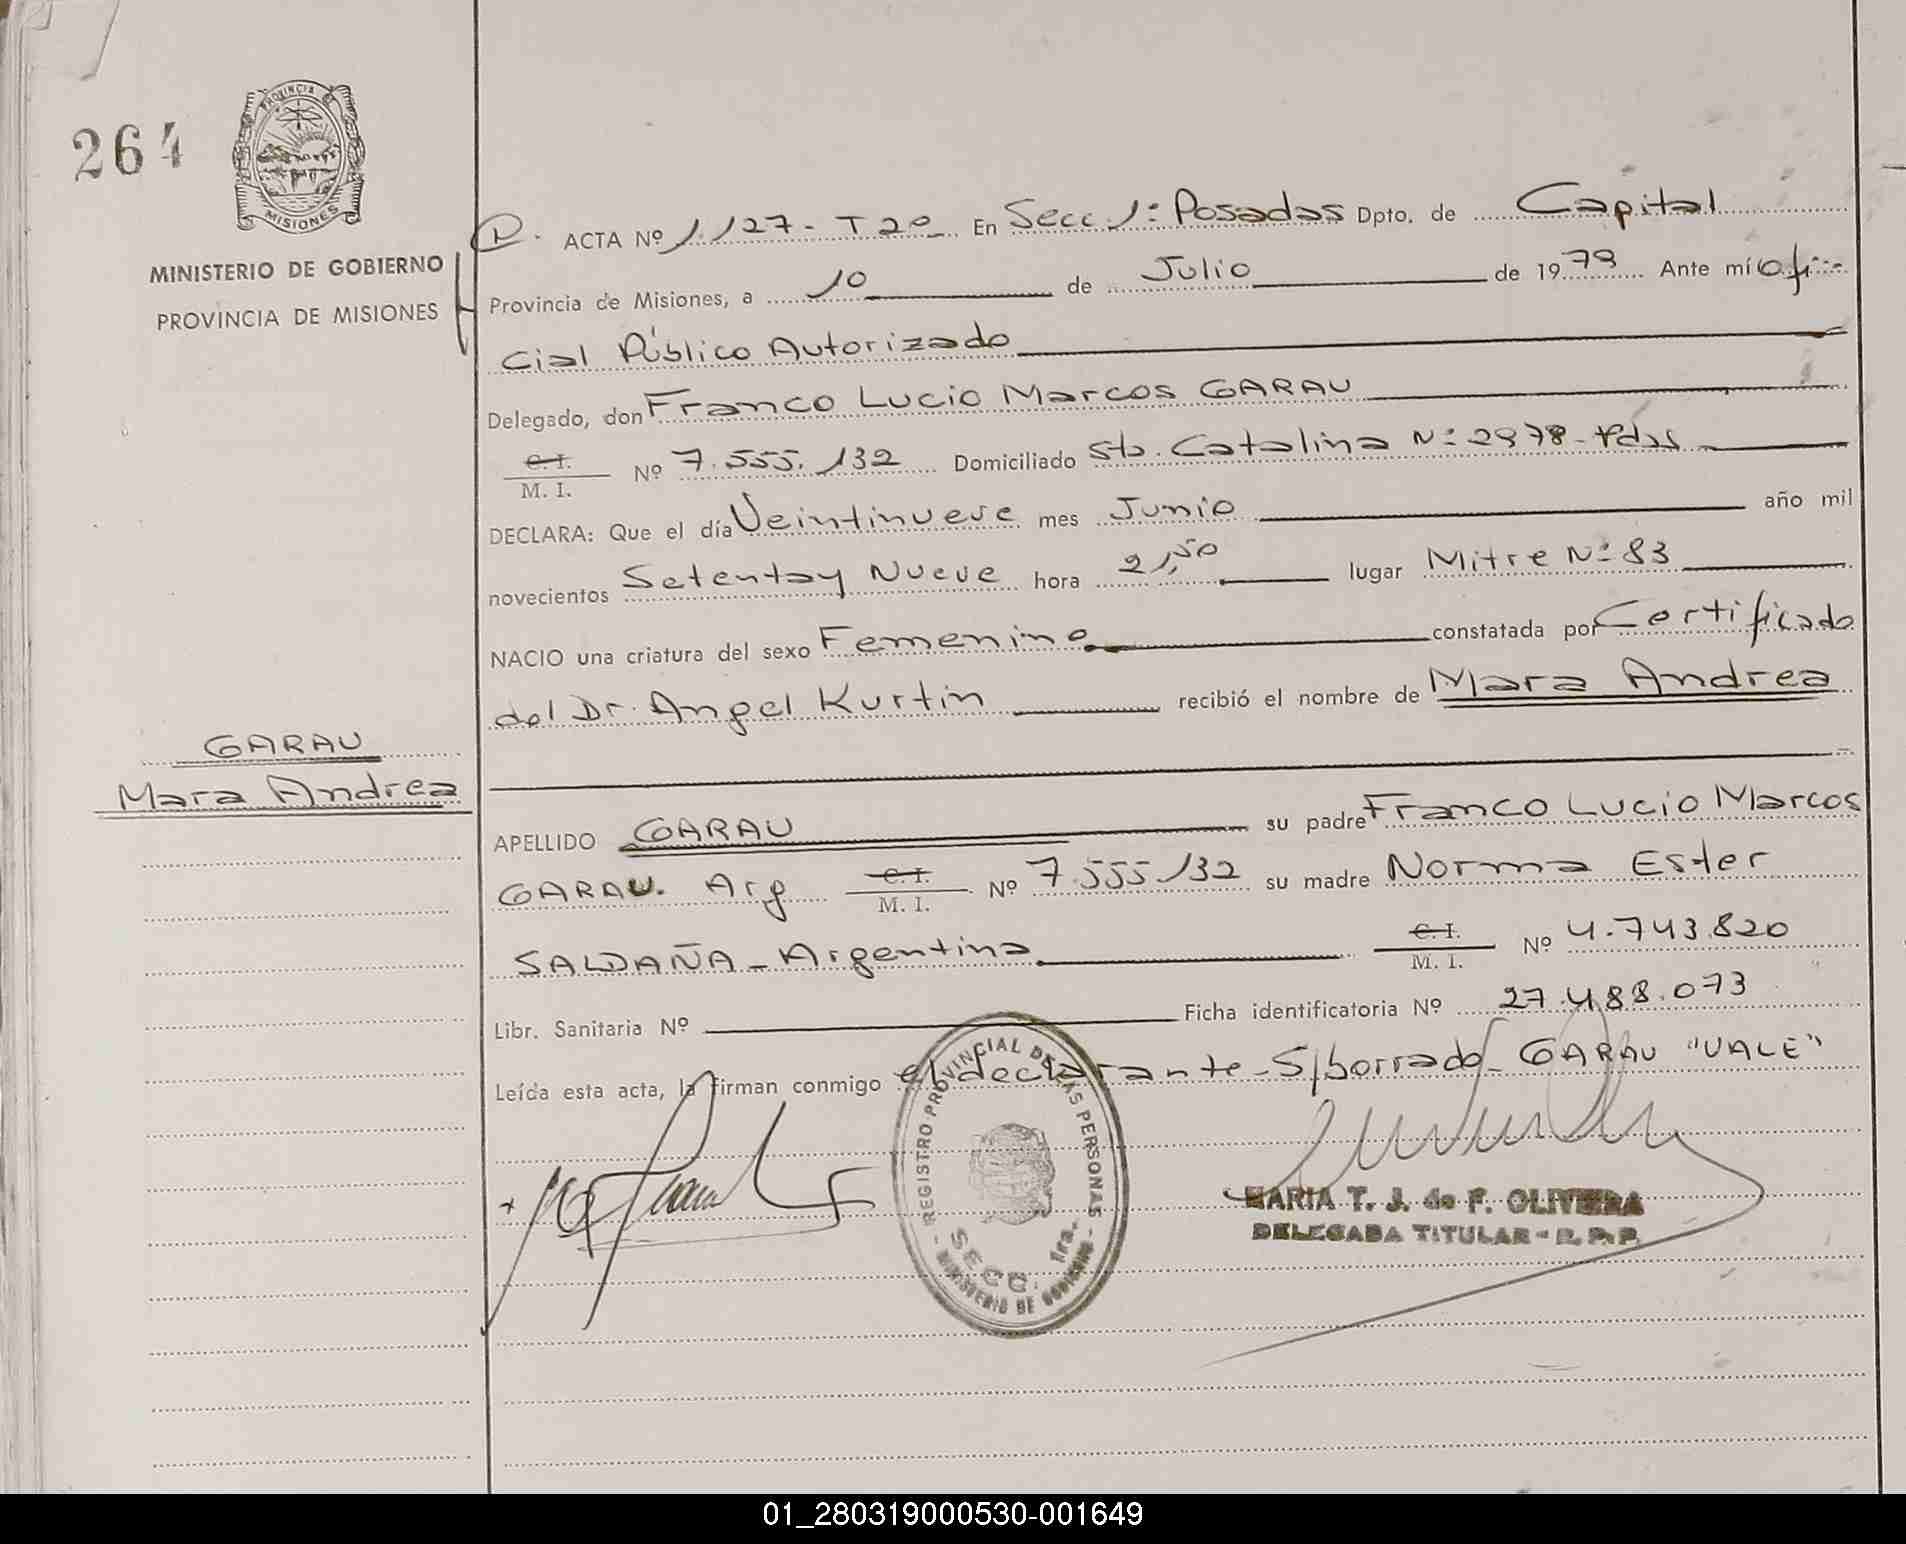 264
PROVINCIA DE
MISIONES
MINISTERIO DE GOBIERNO
PROVINCIA DE MISIONES
ACTA Nº 1.127 - T 2º En Secc 1º: Posadas Dpto. de Capital
Provincia de Misiones, a 10 de Julio de 1979 Ante mí Ofi-
cial Público Autorizado
Delegado, don Franco Lucio Marcos GARAU
C. I.
M. I. Nº 7.555.132 Domiciliado Sta. Catalina Nº 2978 - Pdas
DECLARA: Que el día Veintinueve mes Junio año mil
novecientos Setenta y Nueve hora 21,50 lugar Mitre Nº 83
NACIO una criatura del sexo Femenino constatada por Certificado
del Dr. Angel Kurtin recibió el nombre de Mara Andrea
GARAU
Mara Andrea
APELLIDO GARAU su padre Franco Lucio Marcos
GARAU. Arg C. I. M. I. Nº 7.555.132 su madre Norma Ester
SALDAÑA - Argentina C. I. M. I. Nº 4.743.820
Libr. Sanitaria Nº Ficha identificatoria Nº 27.488.073
Leída esta acta, la firman conmigo el declarante - S/borrado - GARAU "VALE"
REGISTRO PROVINCIAL DE LAS PERSONAS
SECC. 1ra.
MINISTERIO DE GOBIERNO
MARIA T. J. de F. OLIVEIRA
DELEGADA TITULAR - R. P. P.
01_280319000530-001649